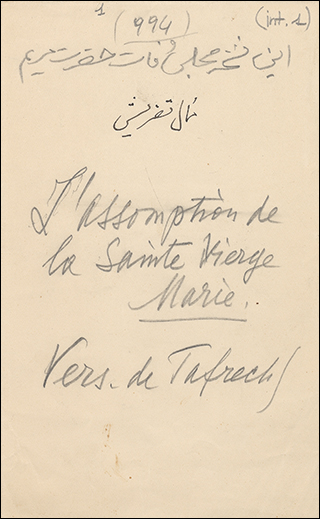 1 (994) (int. 1)
این نسخه مجلس وفات حضرت مریم
مال تفریش
L'assomption de
la Sainte Vierge
Marie..
Vers. de Tafrech